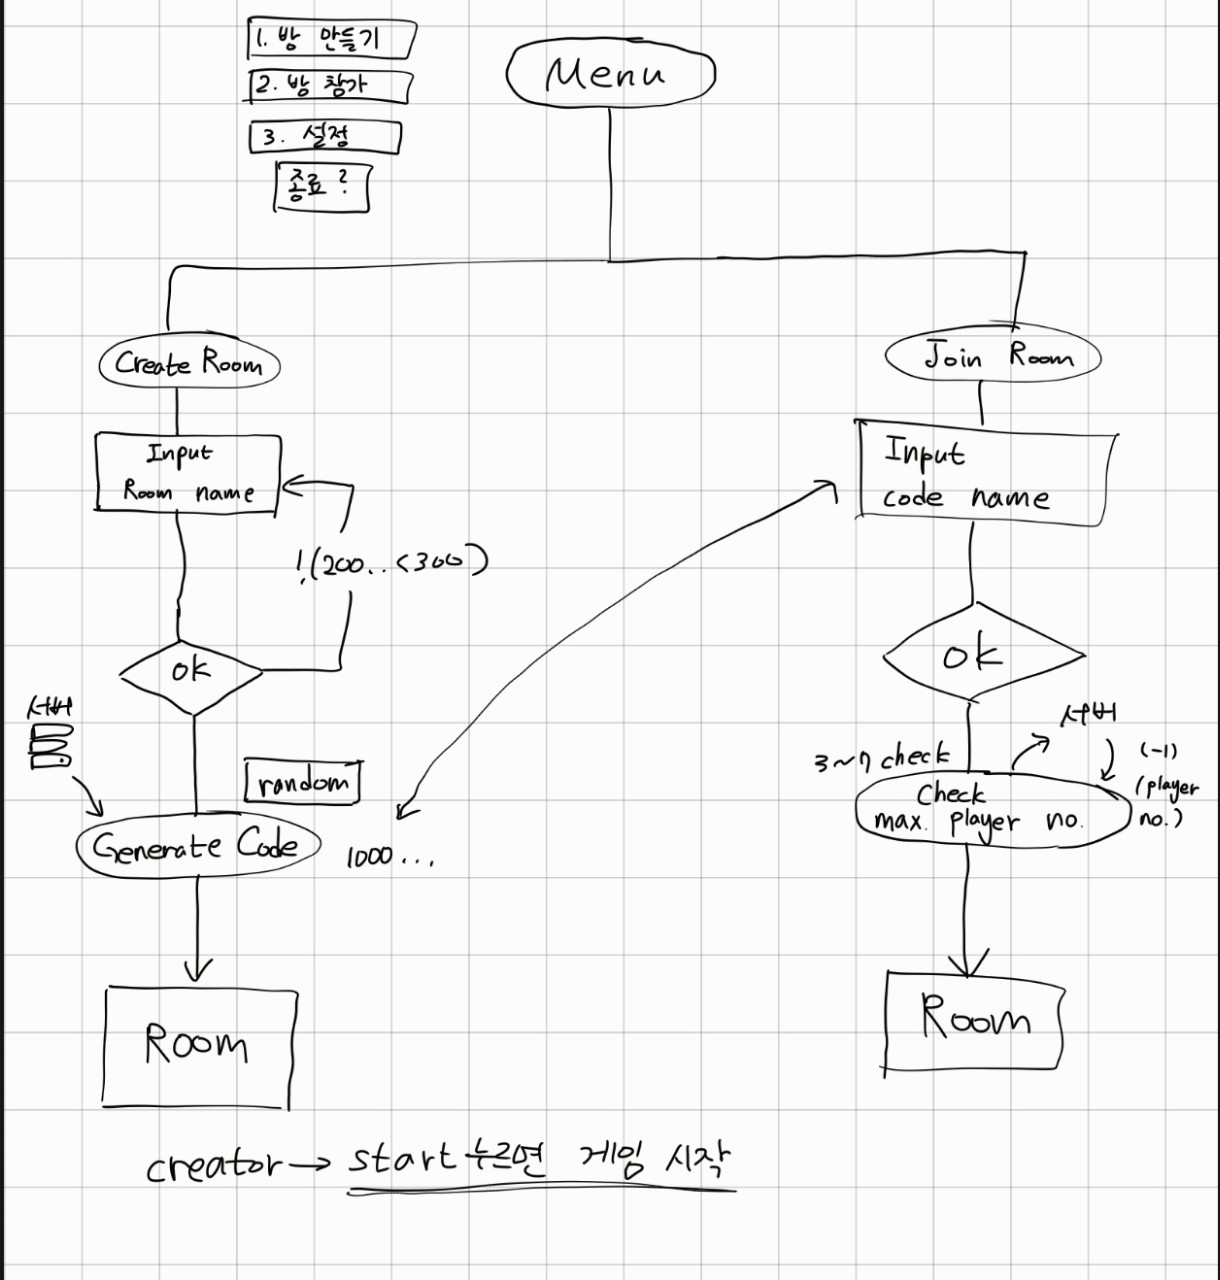 1. 방 만들기
2. 방 참가
3. 설정
종료?
Menu
Create Room
Input
Room name
!(200..<300)
ok
서버
random
Generate Code
1000...
Join Room
Input
code name
ok
서버
3~7 check
(-1)
(player
no.)
Check
max. player no.
Room
Room
creator → start 누르면 게임 시작